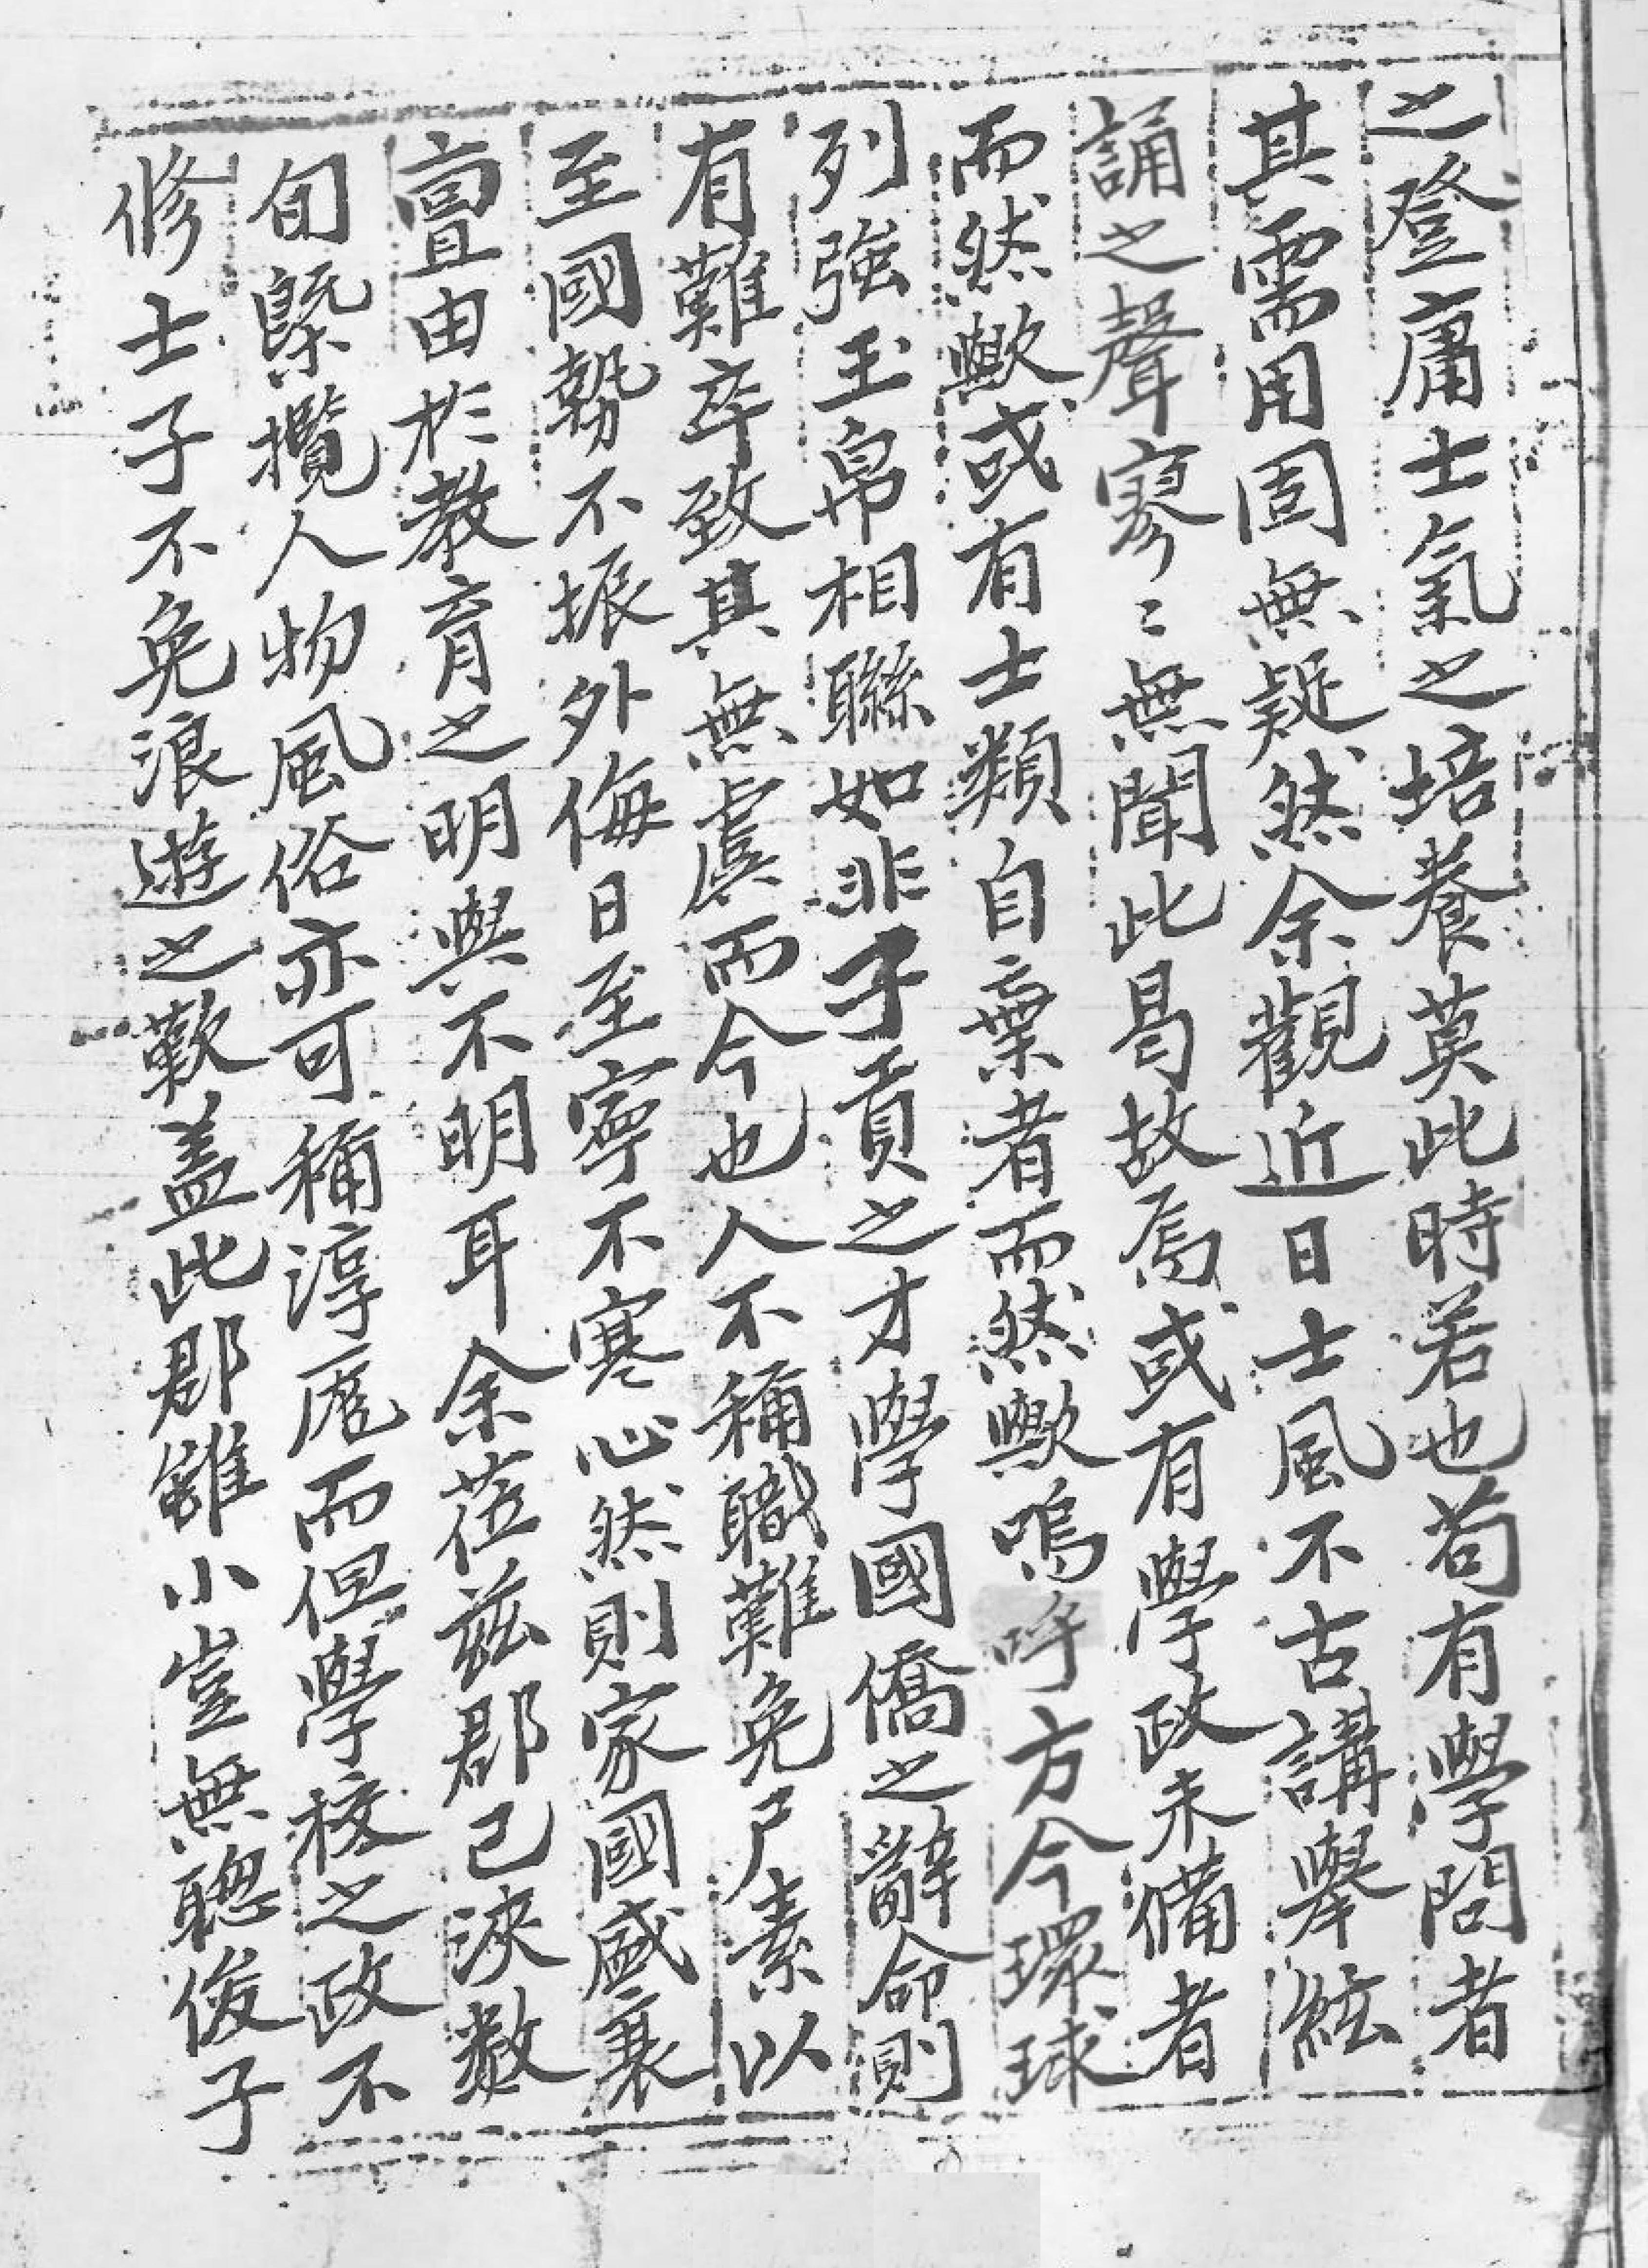 之登庸士氣之培養莫此時若也苟有學問者
其需用固無疑然余觀近日士風不古講學絃
誦之聲寥〻無聞此曷故焉或有學政未備者
而然歟或有士類自棄者而然歟嗚呼方今環球
列強玉帛相聯如非子貢之才學國僑之辭命則
有難卒致其無虞而今也人不稱職難免尸素以
至國勢不振外侮日至寧不寒心然則家國盛衰
亶由於教育之明與不明耳余莅玆郡已浹數
旬槩攬人物風俗亦可稱淳厖而但學校之政不
修士子不免浪遊之歎盖此郡雖小豈無聰俊子